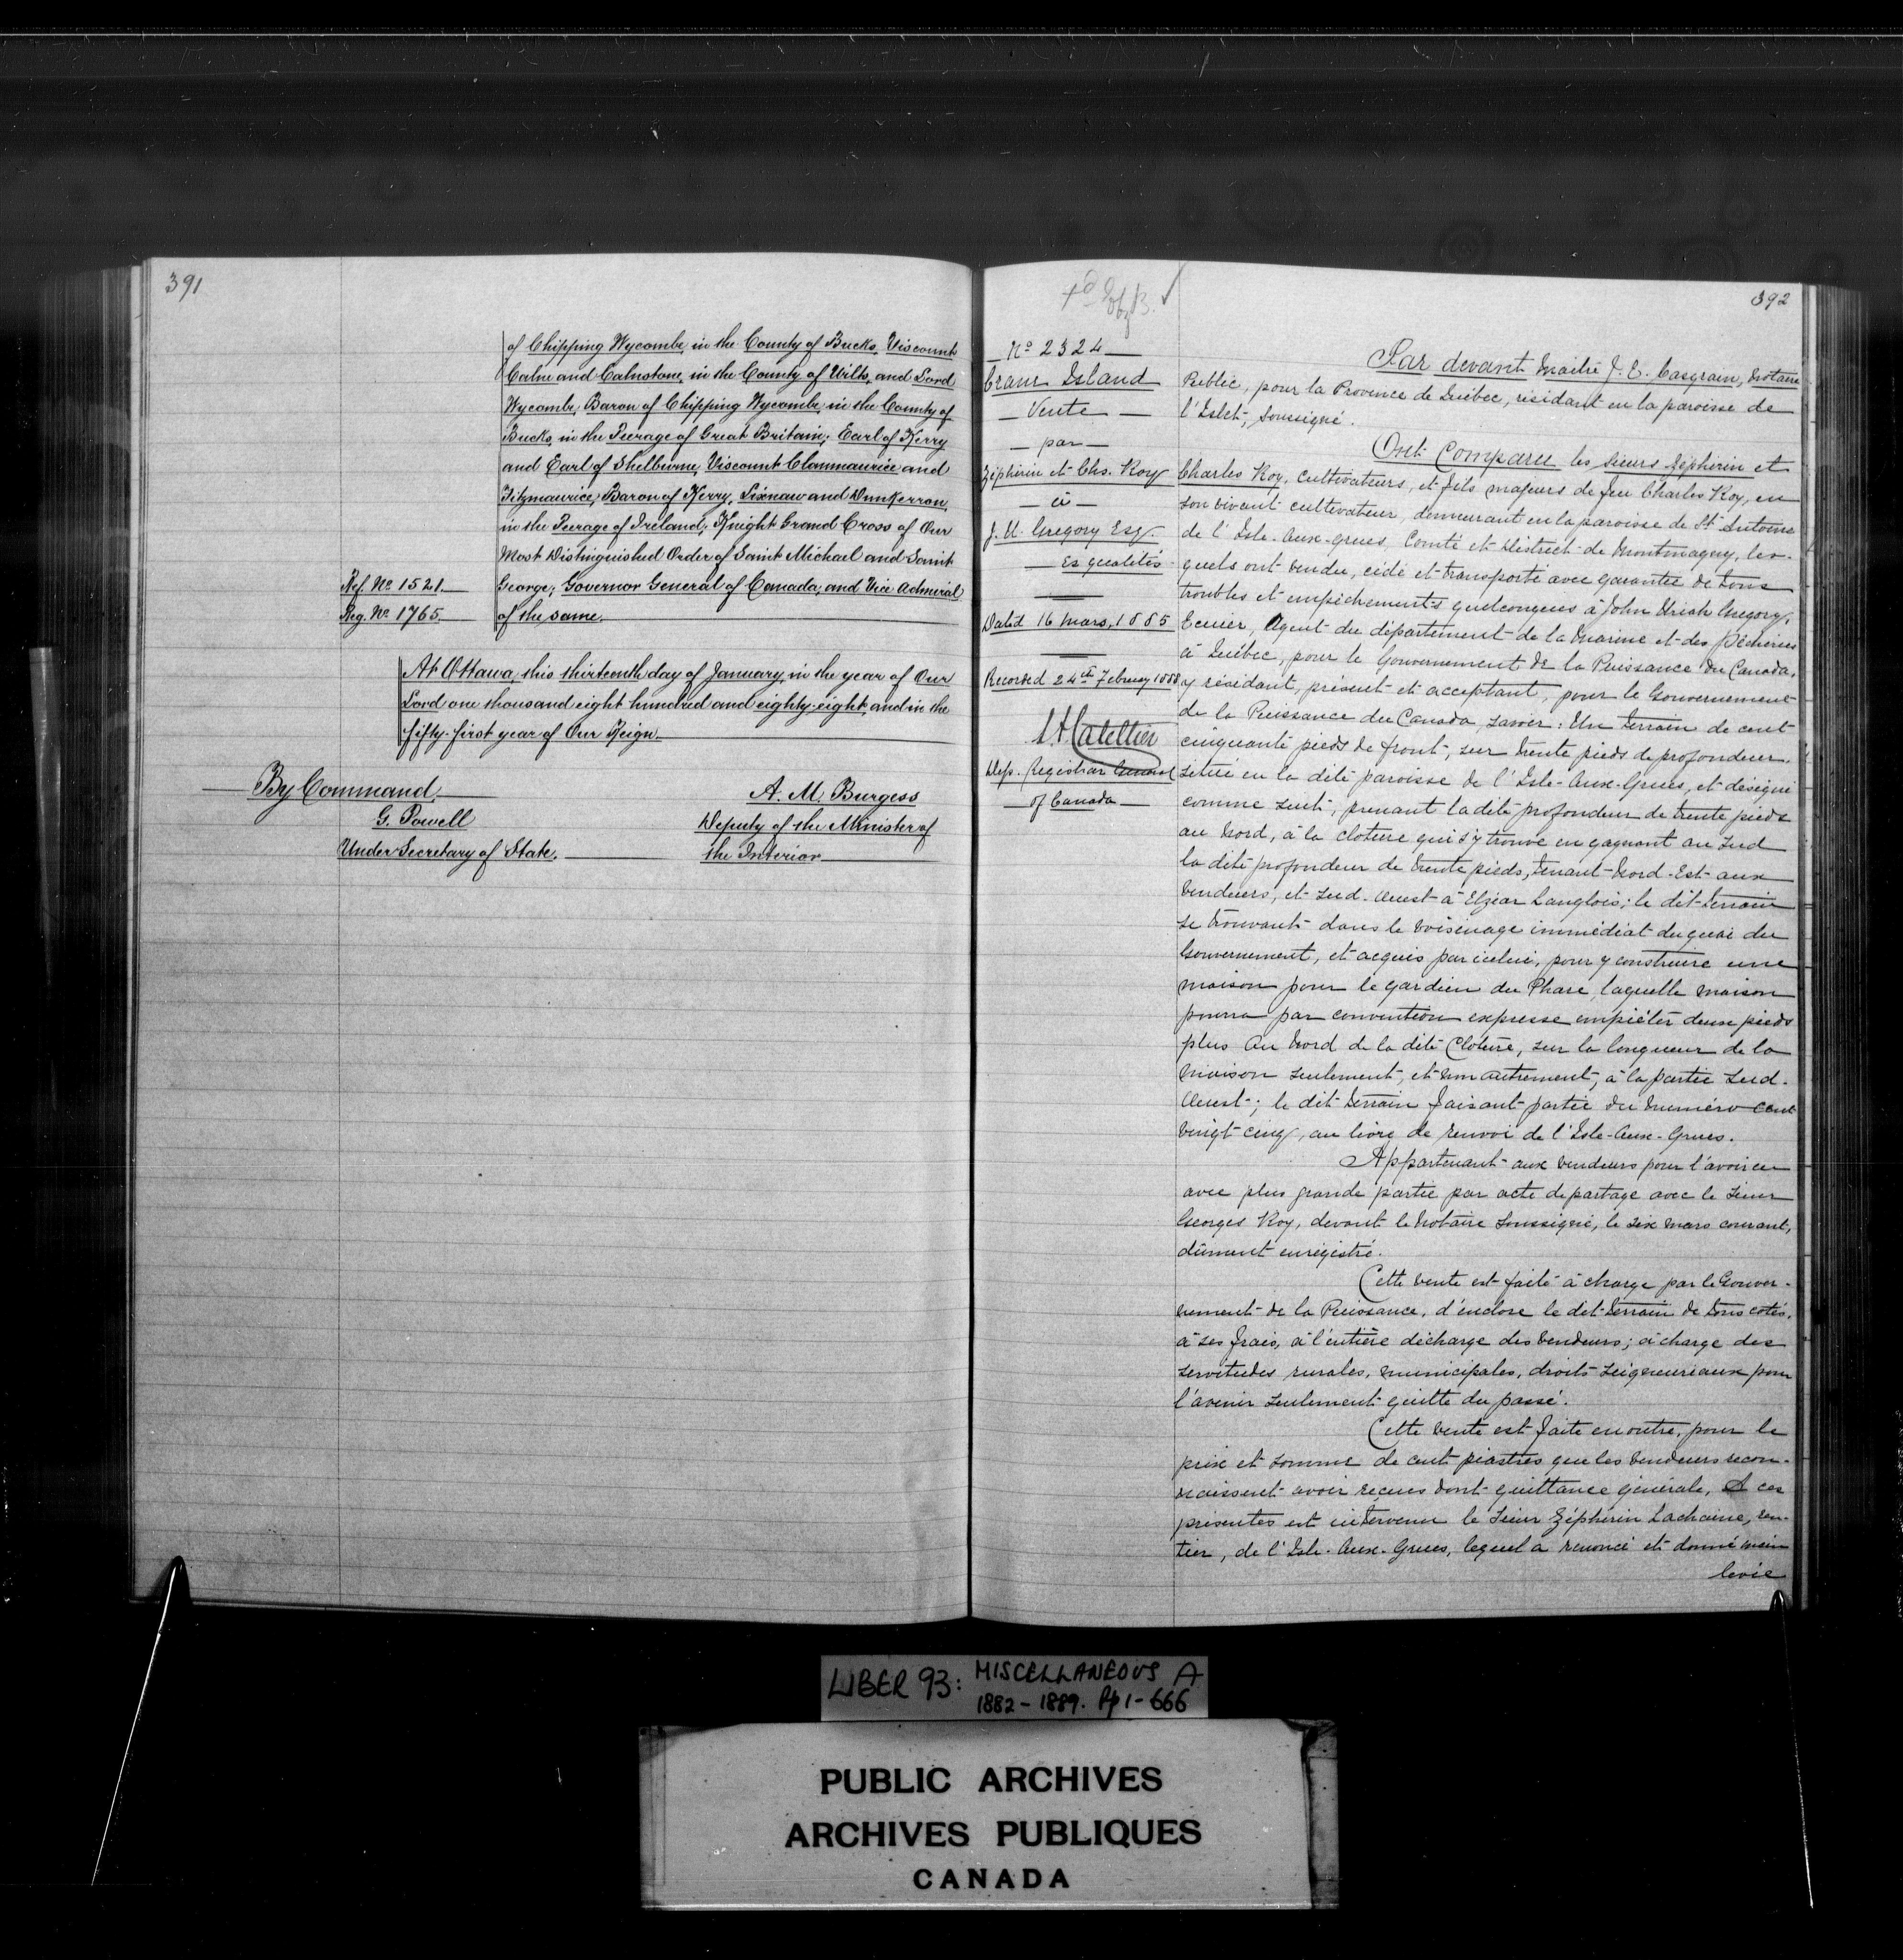 391
of Chipping Wycombe, in the County of Bucks, Viscount
Calne and Calnstone, in the County of Wilts, and Lord
Wycombe, Baron of Chipping Wycombe, in the County of
Bucks, in the Peerage of Great Britain; Earl of Kerry
and Earl of Shelburne, Viscount Clanmaurice and
Fitzmaurice, Baron of Kerry, Lixnaw and Dunkerron,
in the Peerage of Ireland; Knight Grand Cross of Our
Most Distinguished Order of Saint Michael and Saint
George; Governor General of Canada, and Vice Admiral
of the same.
Ref. No. 1521.
Reg. No. 1765.
At Ottawa, this thirteenth day of January, in the year of Our
Lord one thousand eight hundred and eighty-eight, and in the
fifty-first year of Our Reign.
By Command,
G. Powell
Under Secretary of State.
A. M. Burgess
Deputy of the Minister of
the Interior
392
No 2324
Crane Island
Vente
par
Zéphirin et Chs. Roy
à
J. U. Gregory Esq.
Es qualités
Dated 16 Mars, 1885
Recorded 24th February 1888
Dep. Registrar General
of Canada
Par devant Maitre J. E. Casgrain, Notaire
Public, pour la Province de Québec, résidant en la paroisse de
l'Islet, soussigné.
Ont Comparu les sieurs Zéphirin et
Charles Roy, cultivateurs, et fils majeurs de feu Charles Roy, en
son vivant cultivateur, demeurant en la paroisse de St Antoine
de l'Isle-aux-grues, Comté et District de Montmagny, les-
quels ont vendu, cédé et transporté avec garantie de tous
troubles et empêchements quelconques à John Uriah Gregory,
Ecuier, Agent du département de la Marine et des Pêcheries
à Québec, pour le Gouvernement de la Puissance du Canada,
y résidant, présent et acceptant, pour le Gouvernement
de la Puissance du Canada, savoir: Un terrain de cent
cinquante pieds de front, sur trente pieds de profondeur.
situé en la dite paroisse de l'Isle-Aux-Grues, et désigné
comme suit, prenant la dite profondeur de trente pieds
au Nord, à la cloture qui s'y trouve en gagnant au sud
la dite profondeur de trente pieds, tenant Nord-Est aux
vendeurs, et Sud-Ouest à Elzéar Langlois; le dit terrain
se trouvant dans le voisinage immédiat du quai du
Gouvernement, et acquis par icelui, pour y construire une
maison pour le gardien du Phare, laquelle maison
pourra par convention expresse empiéter deux pieds
plus au Nord de la dite Cloture, sur la longueur de la
maison seulement, et non autrement, à la partie Sud-
Ouest; le dit terrain faisant partie du numéro cent
vingt cinq, au livre de renvoi de l'Isle-Aux-Grues.
Appartenant aux vendeurs pour l'avoir eu
avec plus grande partie par acte de partage avec le Sieur
Georges Roy, devant le Notaire soussigné, le six mars courant,
dûment enrégistré.
Cette vente est faite à charge par le Gouver-
nement de la Puissance, d'enclore le dit terrain de tous cotés,
à ses frais, à l'entière décharge des vendeurs; à charge des
servitudes rurales, municipales, droits seigneuriaux pour
l'avenir seulement quitte du passé.
Cette vente est faite en outre, pour le
prix et somme de cent piastres que les vendeurs recon-
naissent avoir reçues dont quittance générale, A ces
présentes est intervenu le Sieur Zéphirin Lachaine, ren-
tier, de l'Isle-Aux-Grues, lequel a renoncé et donné main
levée
LIBER 93: MISCELLANEOUS A
1882-1889. Pp 1-666
PUBLIC ARCHIVES
ARCHIVES PUBLIQUES
CANADA